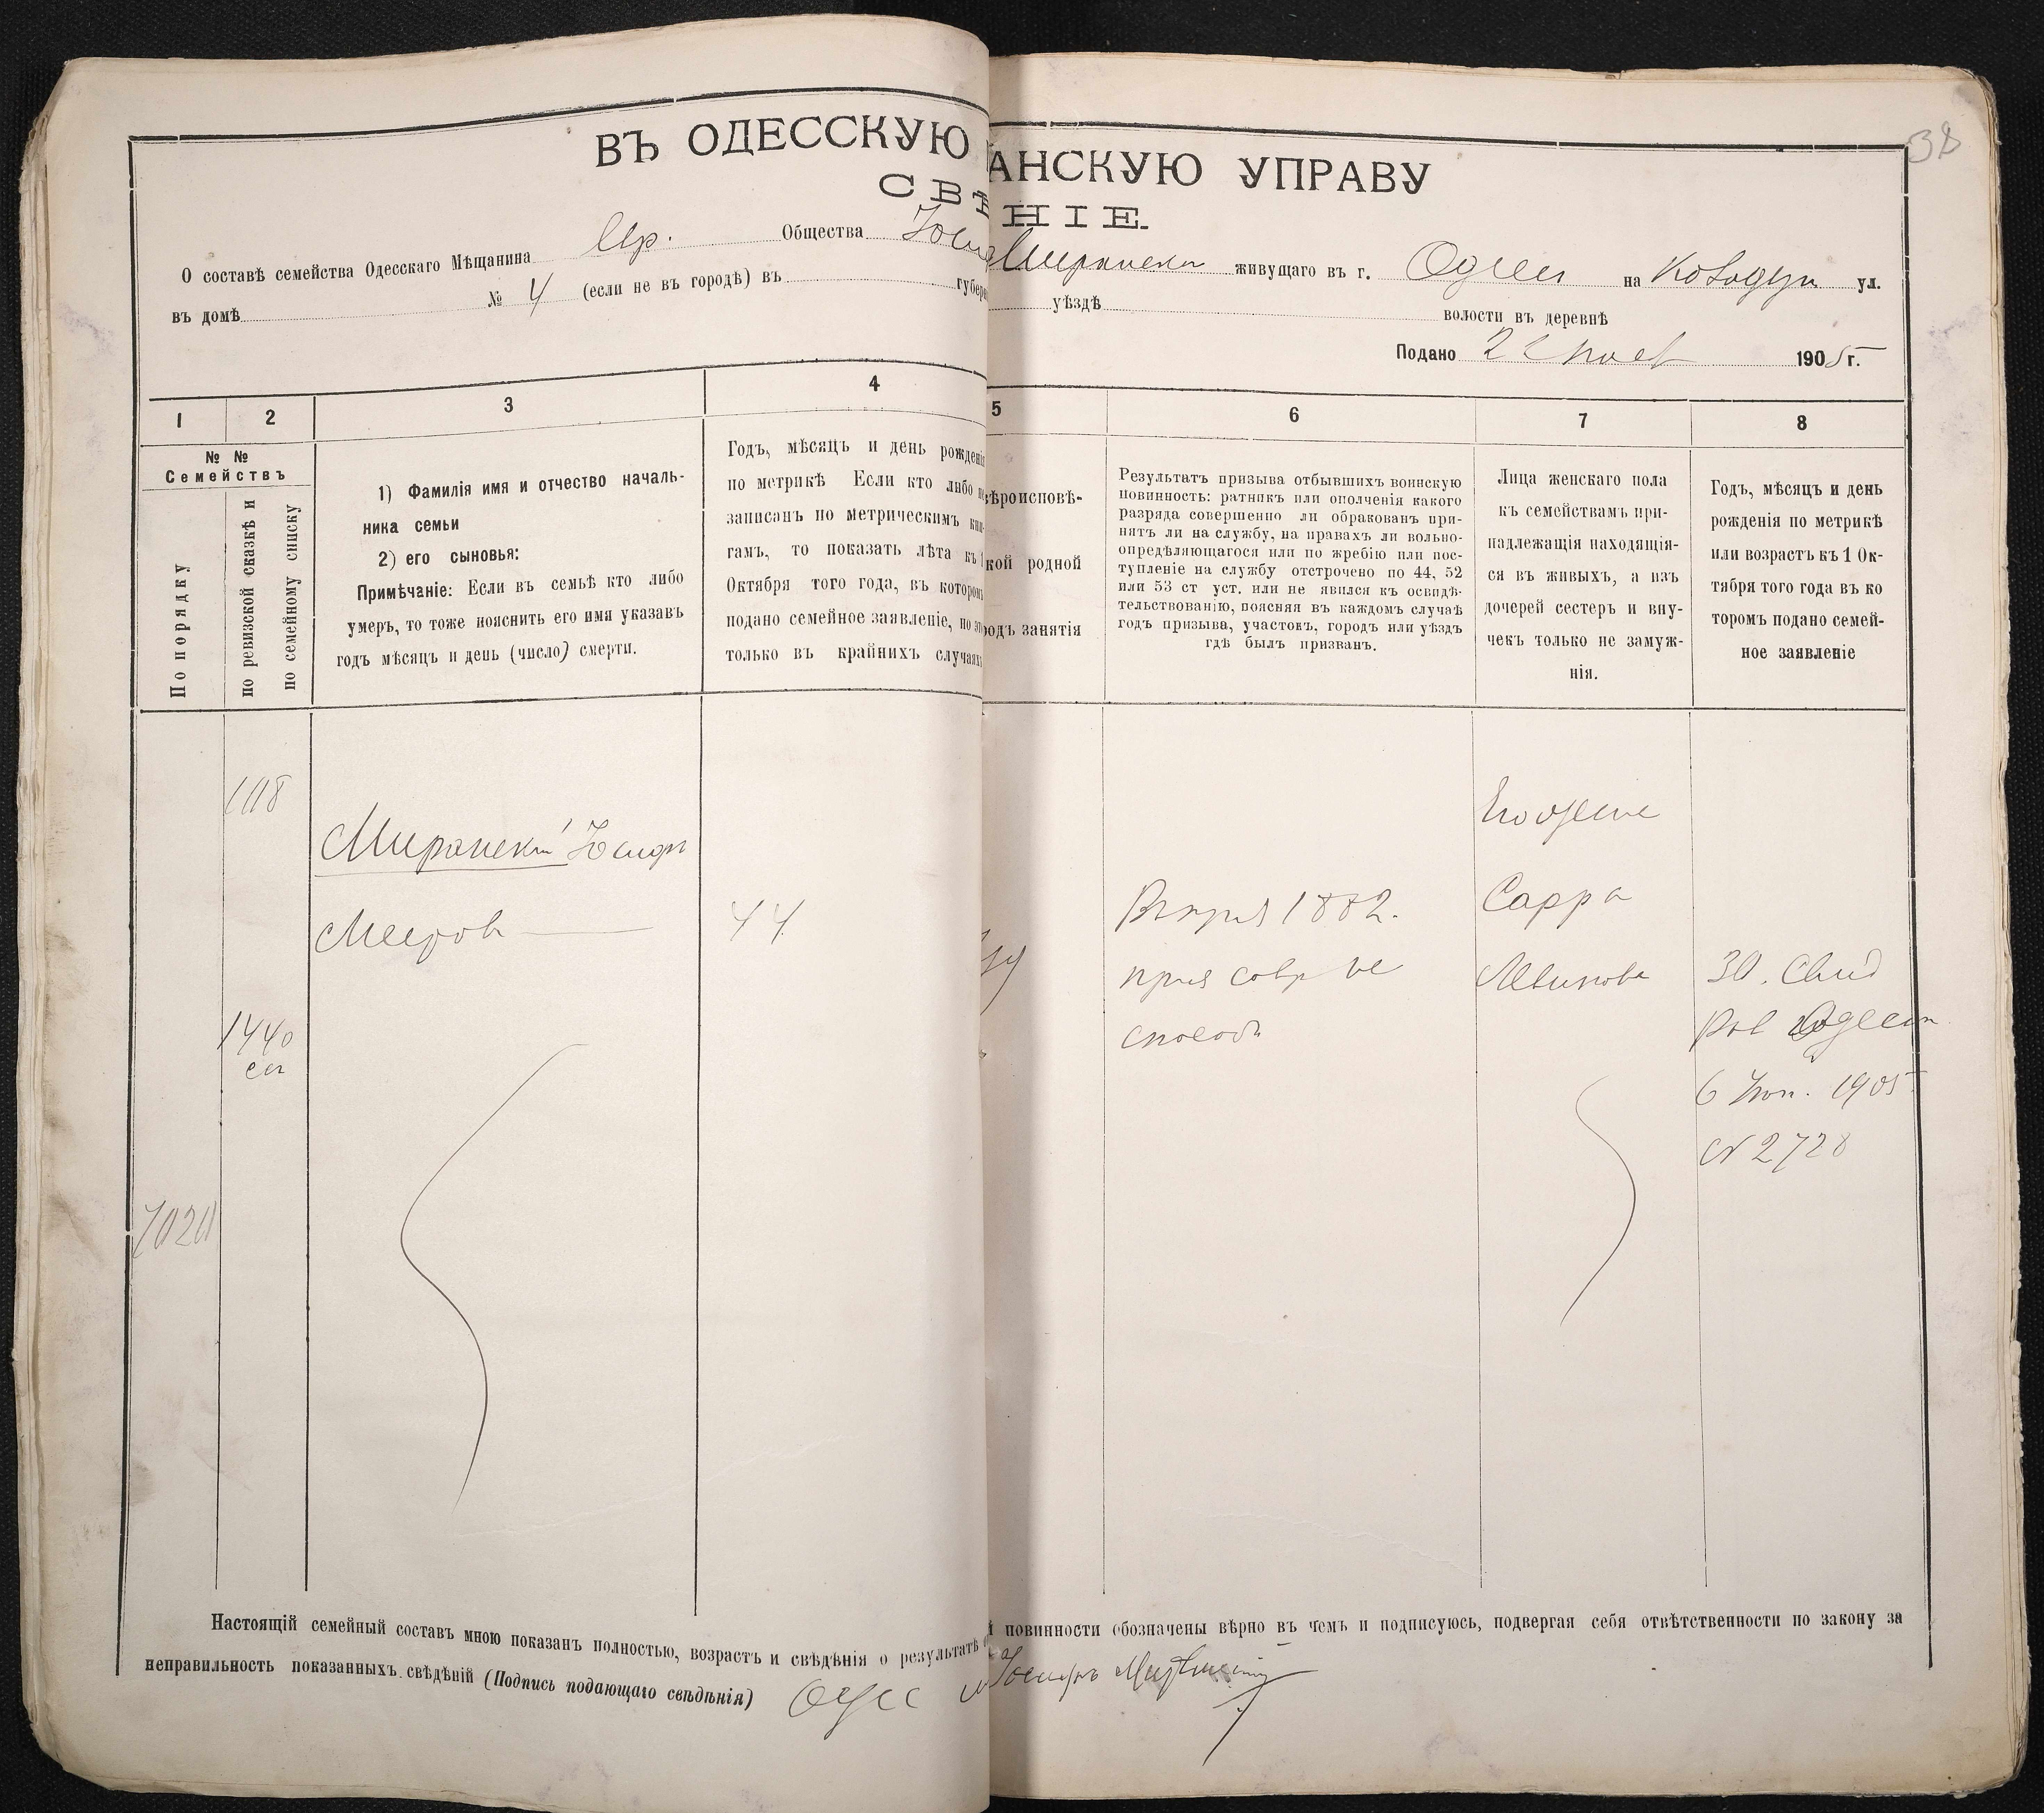 38
ВЪ ОДЕССКУЮ АНСКУЮ УПРАВУ
СВѢ НІЕ.
О составѣ семейства Одесскаго Мѣщанина Евр. Общества живущаго въ г. Одессѣ на ул.
въ домѣ № 4 (если не въ городѣ) въ губер уѣздѣ волости въ деревнѣ
Подано 1905 г.
1 2 3 4 5 6 7 8
№ №
Семействъ
По порядку
по ревизской сказкѣ и
по семейному списку
1) Фамилія имя и отчество началь-
ника семьи
2) его сыновья:
Примѣчаніе: Если въ семьѣ кто либо
умеръ, то тоже пояснить его имя указавъ
годъ мѣсяцъ и день (число) смерти.
Годъ, мѣсяцъ и день рожденія
по метрикѣ Если кто либо
записанъ по метрическимъ кни-
гамъ, то показать лѣта къ 1
Октября того года, въ которомъ
подано семейное заявленіе, но
только въ крайнихъ случаяхъ
ѣроисповѣ-
кой родной
родъ занятія
Результатъ призыва отбывшихъ воинскую
повинность: ратникъ или ополченія какого
разряда совершенно ли обракованъ при-
нятъ ли на службу, на правахъ ли вольно-
опредѣляющагося или по жребію или пос-
тупленіе на службу отстрочено по 44, 52
или 53 ст уст. или не явился къ освидѣ-
тельствованію, поясняя въ каждомъ случаѣ
годъ призыва, участокъ, городъ или уѣздъ
гдѣ былъ призванъ.
Лица женскаго пола
къ семействамъ при-
надлежащія находящія-
ся въ живыхъ, а изъ
дочерей сестеръ и вну-
чекъ только не замуж-
нія.
Годъ, мѣсяцъ и день
рожденія по метрикѣ
или возрастъ къ 1 Ок-
тября того года въ ко
торомъ подано семей-
ное заявленіе
1440
Миранскій Іосифъ
Мееровъ
44
1882.
прия совр не
способ
Его жена
Сарра
30. Свид
6 1905
№ 2728
7020
Настоящій семейный составъ мною показанъ полностью, возрастъ и свѣдѣнія о результатѣ й повинности обозначены вѣрно въ чемъ и подписуюсь, подвергая себя отвѣтственности по закону за
неправильность показанныхъ свѣдѣній (Подпись подающаго свѣдѣнія) Іосифъ